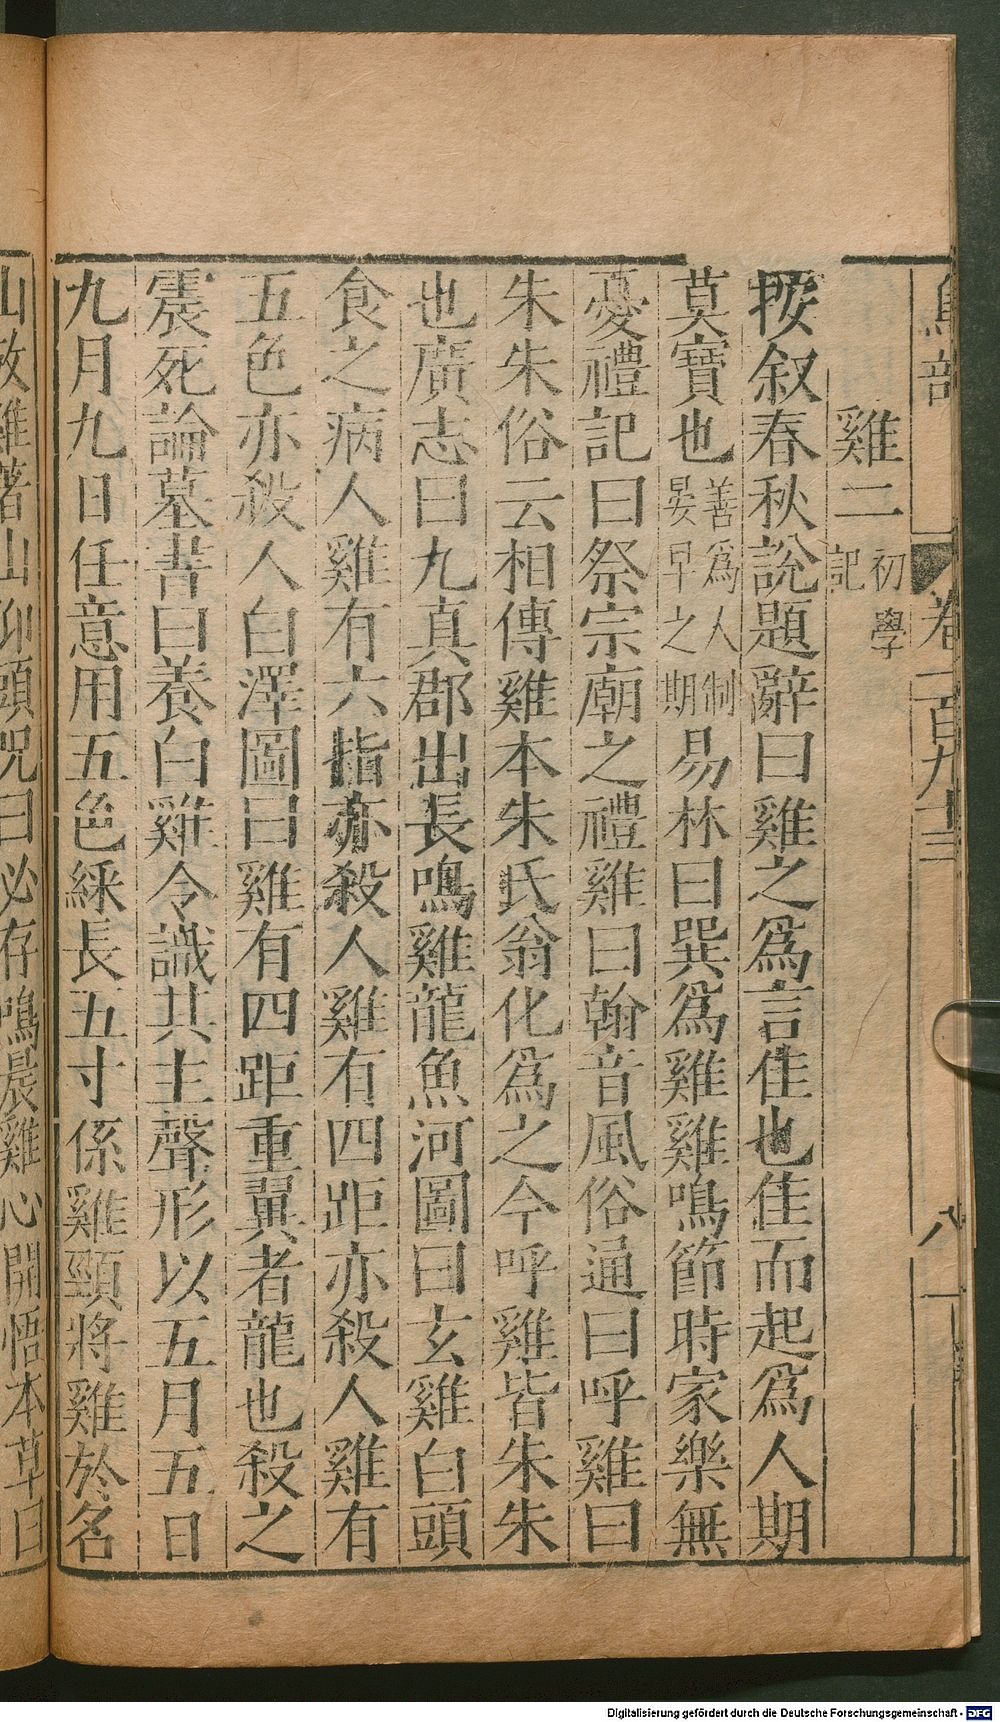 鳥部
卷一百九十三
八
雞二 初學記
按叙春秋說題辭曰雞之爲言佳也佳而起爲人期
莫寶也 善爲人制晏早之期 易林曰巽爲雞雞鳴節時家樂無
憂禮記曰祭宗廟之禮雞曰翰音風俗通曰呼雞曰
朱朱俗云相傳雞本朱氏翁化爲之今呼雞皆朱朱
也廣志曰九真郡出長鳴雞龍魚河圖曰玄雞白頭
食之病人雞有六指亦殺人雞有四距亦殺人雞有
五色亦殺人白澤圖曰雞有四距重翼者龍也殺之
震死論墓書曰養白雞令識其主聲形以五月五日
九月九日任意用五色綵長五寸係雞頸將雞於名
山放雞著山仰頭咒曰必存鳴晨雞心開悟本草曰
Digitalisierung gefördert durch die Deutsche Forschungsgemeinschaft - DFG